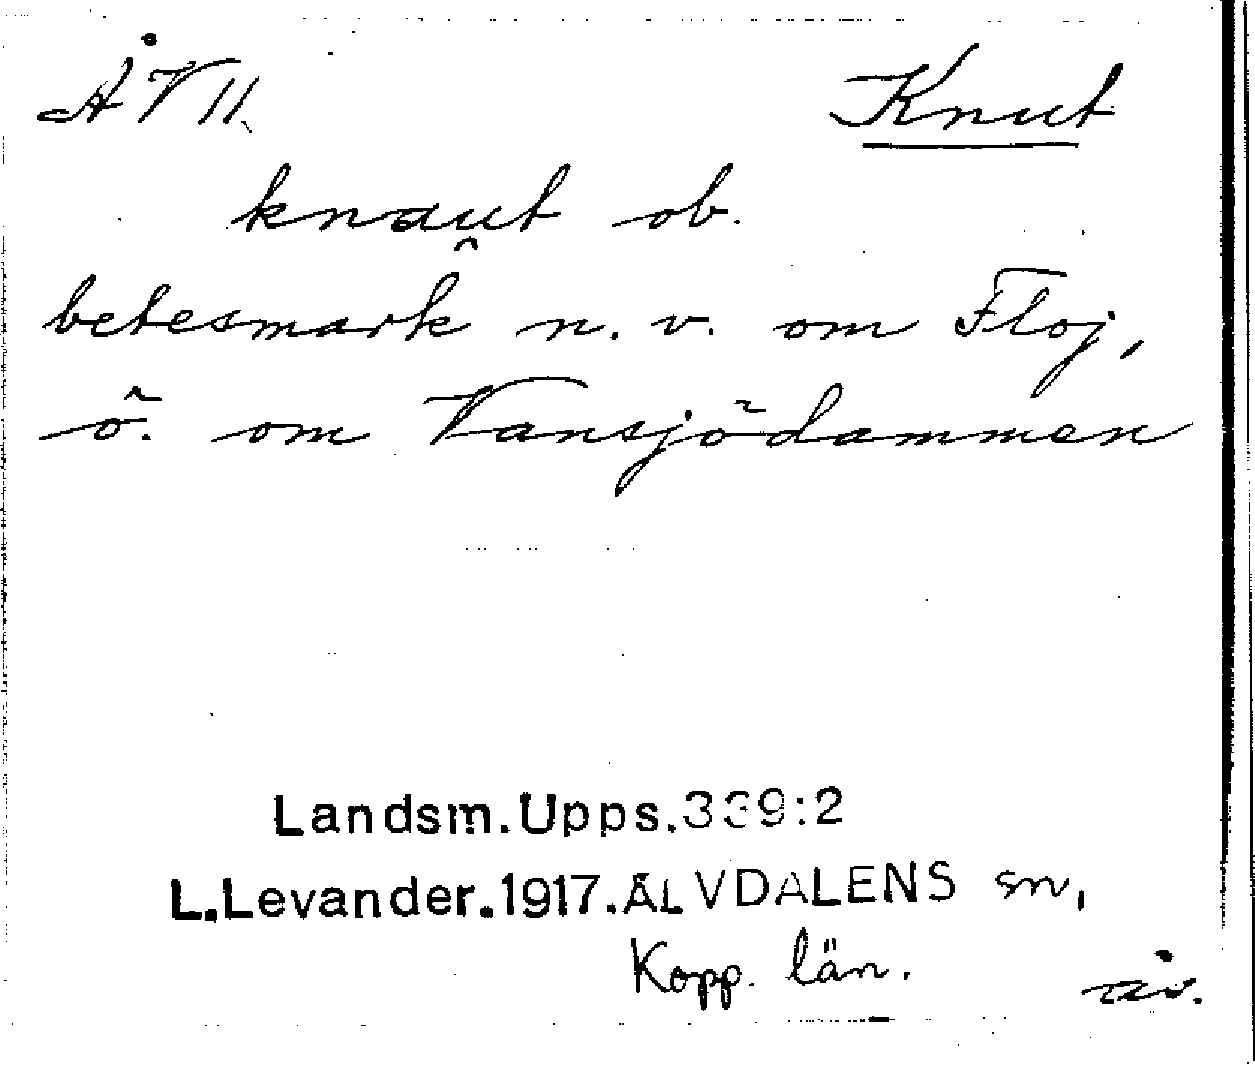 ÅVII. Knut
knau̯t ob.
betesmark n. v. om Floj,
ö. om Vansjödammen
Landsm.Upps.339:2
L.Levander.1917.ÄLVDALENS sn,
Kopp. län.
åv.